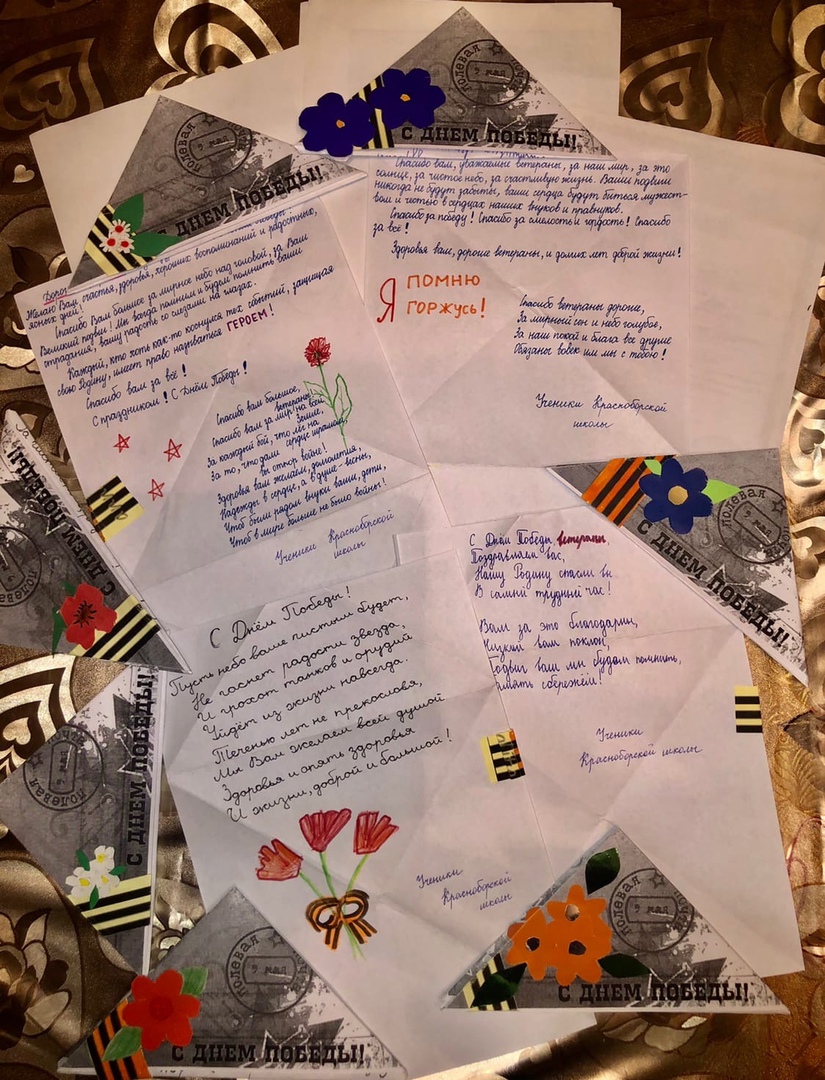 полевая почта
9 мая
С ДНЕМ ПОБЕДЫ!
Спасибо вам, уважаемые ветераны, за наш мир, за это
солнце, за чистое небо, за счастливую жизнь. Ваши подвиги
никогда не будут забыты, ваши сердца будут биться мужест-
вом и честью в сердцах наших внуков и правнуков.
Спасибо за победу! Спасибо за смелость и гордость! Спасибо
за все!
Здоровья вам, дорогие ветераны, и долгих лет доброй жизни!
Я ПОМНЮ
ГОРЖУСЬ!
Спасибо ветераны дорогие,
За мирный сон и небо голубое,
За наш покой и блага все другие
Обязаны вовек им мы с тобою!
Ученики Красноборской
школы
полевая почта
9 мая
С ДНЕМ ПОБЕДЫ!
Дорог
Желаю Вам, счастья, здоровья, хороших воспоминаний и радостных,
ясных дней!
Спасибо Вам большое за мирное небо над головой, за Ваш
Великий подвиг! Мы всегда помним и будем помнить Ваши
страдания, вашу радость со слезами на глазах.
Каждый, кто хоть как-то коснулся тех событий, защищая
свою Родину, имеет право называться ГЕРОЕМ!
Спасибо вам за всё!
С праздником! С Днём Победы!
Спасибо вам большое,
ветераны!
Спасибо вам за мир на всей
Земле,
За каждый бой, что
За то, что дали
вы отпор войне!
Здоровья вам желаем, долголетия,
Надежды в сердце, а в душе - весны,
Чтоб были рядом внуки ваши, дети,
Чтоб в мире больше не было войны!
Ученики Красноборской
школы
С ДНЕМ ПОБЕДЫ!
полевая почта
9 мая
С ДНЕМ ПОБЕДЫ!
С Днём Победы ветераны,
Поздравляем вас,
Нашу Родину спасли вы
В самый трудный час!
Вам за это благодарны,
Низкий вам поклон,
Подвиг ваш мы будем помнить,
сбережём!
Ученики
Красноборской школы
С Днём Победы!
Пусть небо ваше чистым будет,
Не гаснет радости звезда,
И грохот танков и орудий
Уйдёт из жизни навсегда.
Теченью лет не прекословя,
Мы Вам желаем всей душой
Здоровья и опять здоровья
И жизни, доброй и большой!
Ученики
Красноборской
школы
полевая
С ДНЕМ ПОБЕДЫ!
полевая почта
9 мая
С ДНЕМ ПОБЕДЫ!
полевая почта
9 мая
С ДНЕМ ПОБЕДЫ!